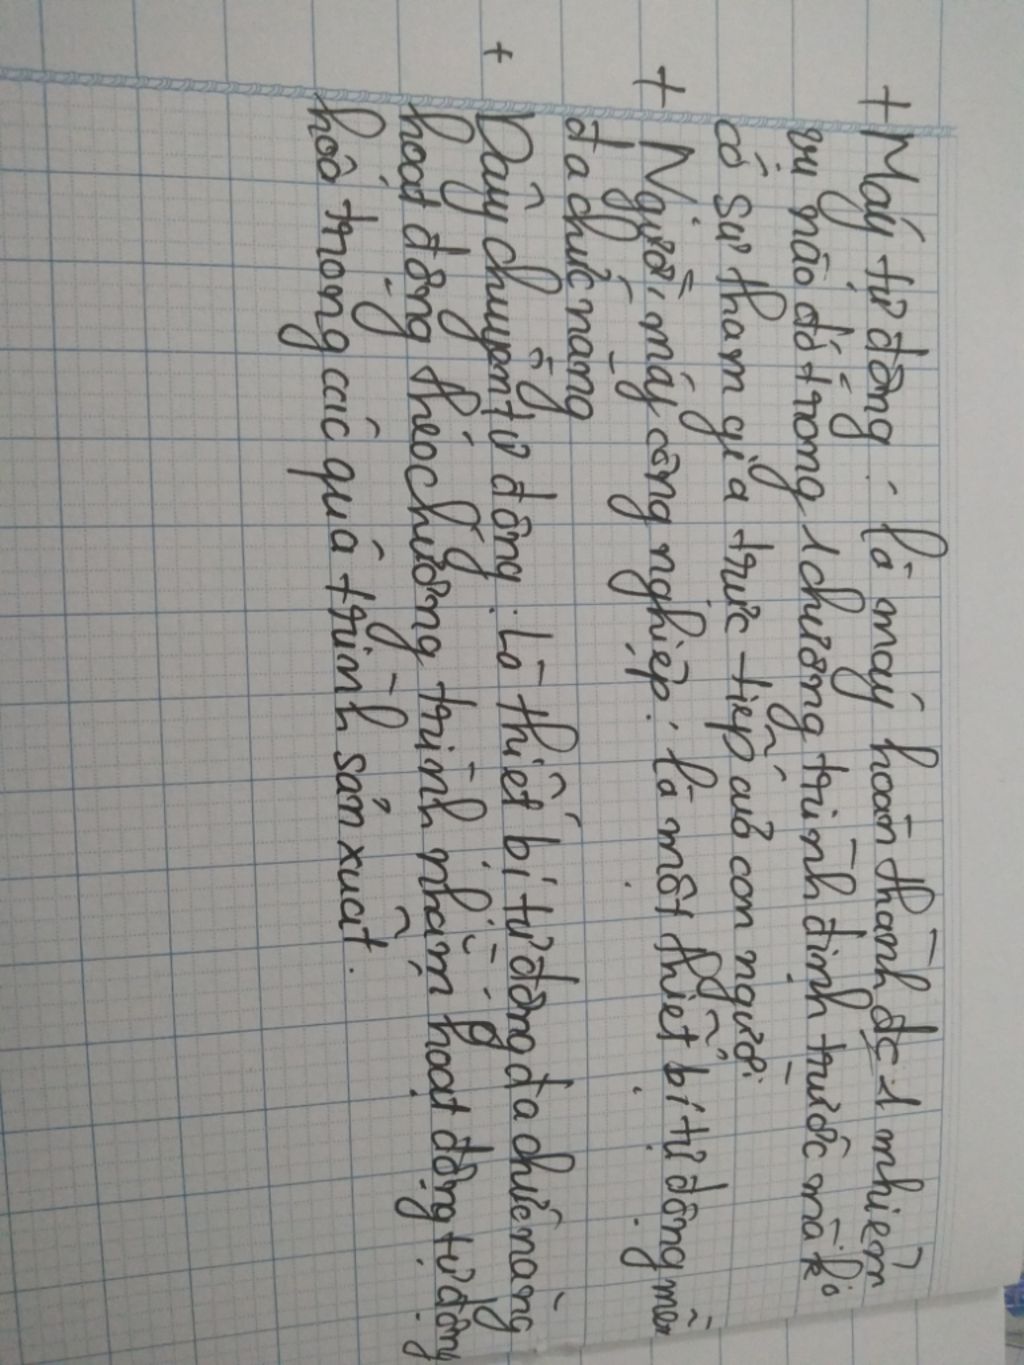 + Máy tự động: là máy hoàn thành đc 1 nhiệm
vụ nào đó trong 1 chương trình định trước mà ko
có sự tham gia trực tiếp của con người
+ Người máy công nghiệp: là một thiết bị tự động
đa chức năng
+ Dây chuyền tự động: Là thiết bị tự động đa chức năng
hoạt động theo chương trình nhằm hoạt động tự động
hoá trong các quá trình sản xuất.